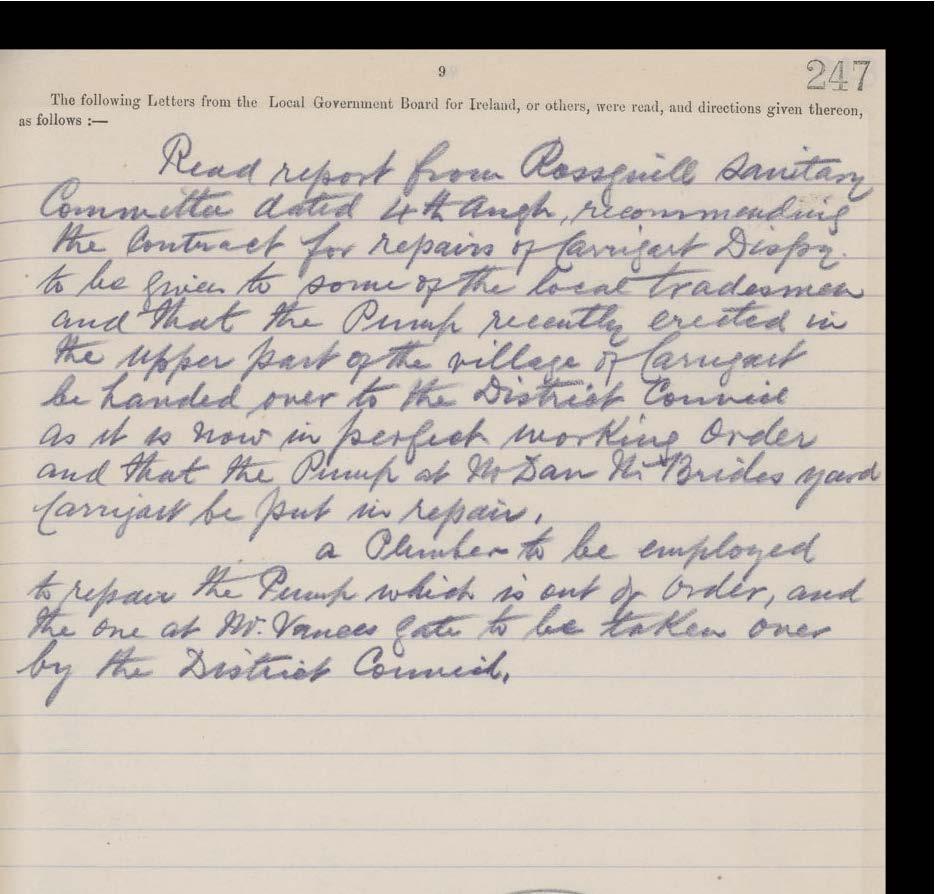 9
247
The following Letters from the Local Government Board for Ireland, or others, were read, and directions given thereon,
as follows :—
Read report from Rossguill Sanitary
Committee dated 4th Augt, recommending
the Contract for repairs of Carrigart Dispy.
to be given to some of the local tradesmen
and that the Pump recently erected in
the upper part of the village of Carrigart
be handed over to the District Council
as it is now in perfect working order
and that the Pump at Mr Dan McBrides yard
Carrigart be put in repair.
a Plumber to be employed
to repair the Pump which is out of order, and
the one at Mr. Vances gate to be taken over
by the District Council.